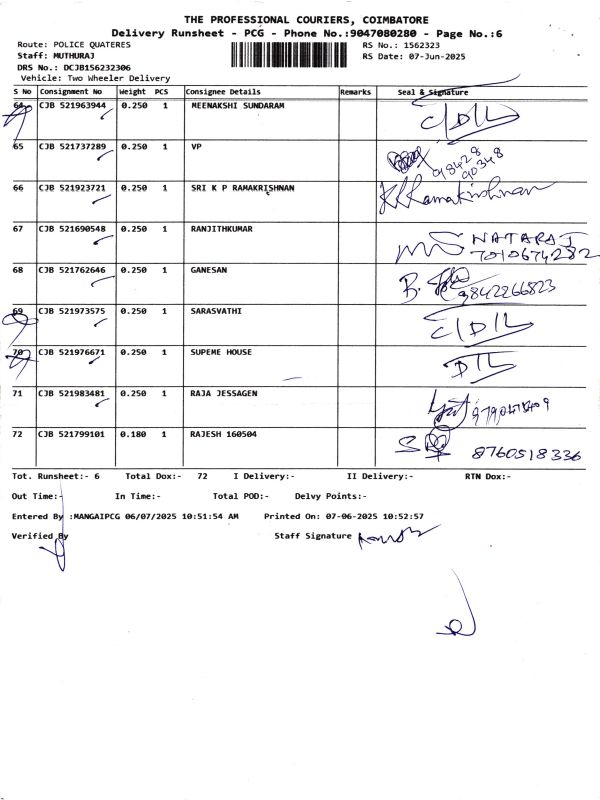 THE PROFESSIONAL COURIERS, COIMBATORE
Delivery Runsheet - PCG - Phone No.:9047080280 - Page No.:6
Route: POLICE QUATERES RS No.: 1562323
Staff: MUTHURAJ RS Date: 07-Jun-2025
DRS No.: DCJB156232306
Vehicle: Two Wheeler Delivery
S No Consignment No Weight PCS Consignee Details Remarks Seal & Signature
64 CJB 521963944 0.250 1 MEENAKSHI SUNDARAM C/D/L
65 CJB 521737289 0.250 1 VP 98428
90348
66 CJB 521923721 0.250 1 SRI K P RAMAKRISHNAN Ramakrishnan
67 CJB 521690548 0.250 1 RANJITHKUMAR NATARAJ
7010674282
68 CJB 521762646 0.250 1 GANESAN B. 9842266823
69 CJB 521973575 0.250 1 SARASVATHI C/D/L
70 CJB 521976671 0.250 1 SUPEME HOUSE D/L
71 CJB 521983481 0.250 1 RAJA JESSAGEN
72 CJB 521799101 0.180 1 RAJESH 160504 8760518336
Tot. Runsheet:- 6 Total Dox:- 72 I Delivery:- II Delivery:- RTN Dox:-
Out Time:- In Time:- Total POD:- Delvy Points:-
Entered By :MANGAIPCG 06/07/2025 10:51:54 AM Printed On: 07-06-2025 10:52:57
Verified By Staff Signature